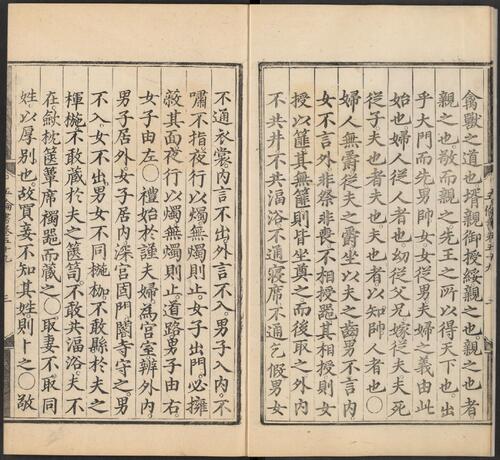 禽獸之道也壻親御授綏親之也親之也者
親之也敬而親之先王之所以得天下也出
乎大門而先男帥女女從男夫婦之義由此
始也婦人從人者也幼從父兄嫁從夫夫死
從子夫也者夫也夫也者以知帥人者也○
婦人無爵從夫之爵坐以夫之齒男不言內
女不言外非祭非喪不相授器其相授則女
授以篚其無篚則皆坐奠之而后取之外內
不共井不共湢浴不通寢席不通乞假男女
不通衣裳內言不出外言不入男子入內不
嘯不指夜行以燭無燭則止女子出門必擁
蔽其面夜行以燭無燭則止道路男子由右
女子由左○禮始於謹夫婦爲宮室辨外內
男子居外女子居內深宮固門閽寺守之男
不入女不出男女不同椸枷不敢縣於夫之
楎椸不敢藏於夫之篋笥不敢共湢浴夫不
在斂枕篋簟席襡器而藏之○取妻不取同
姓以厚別也故買妾不知其姓則卜之○敬